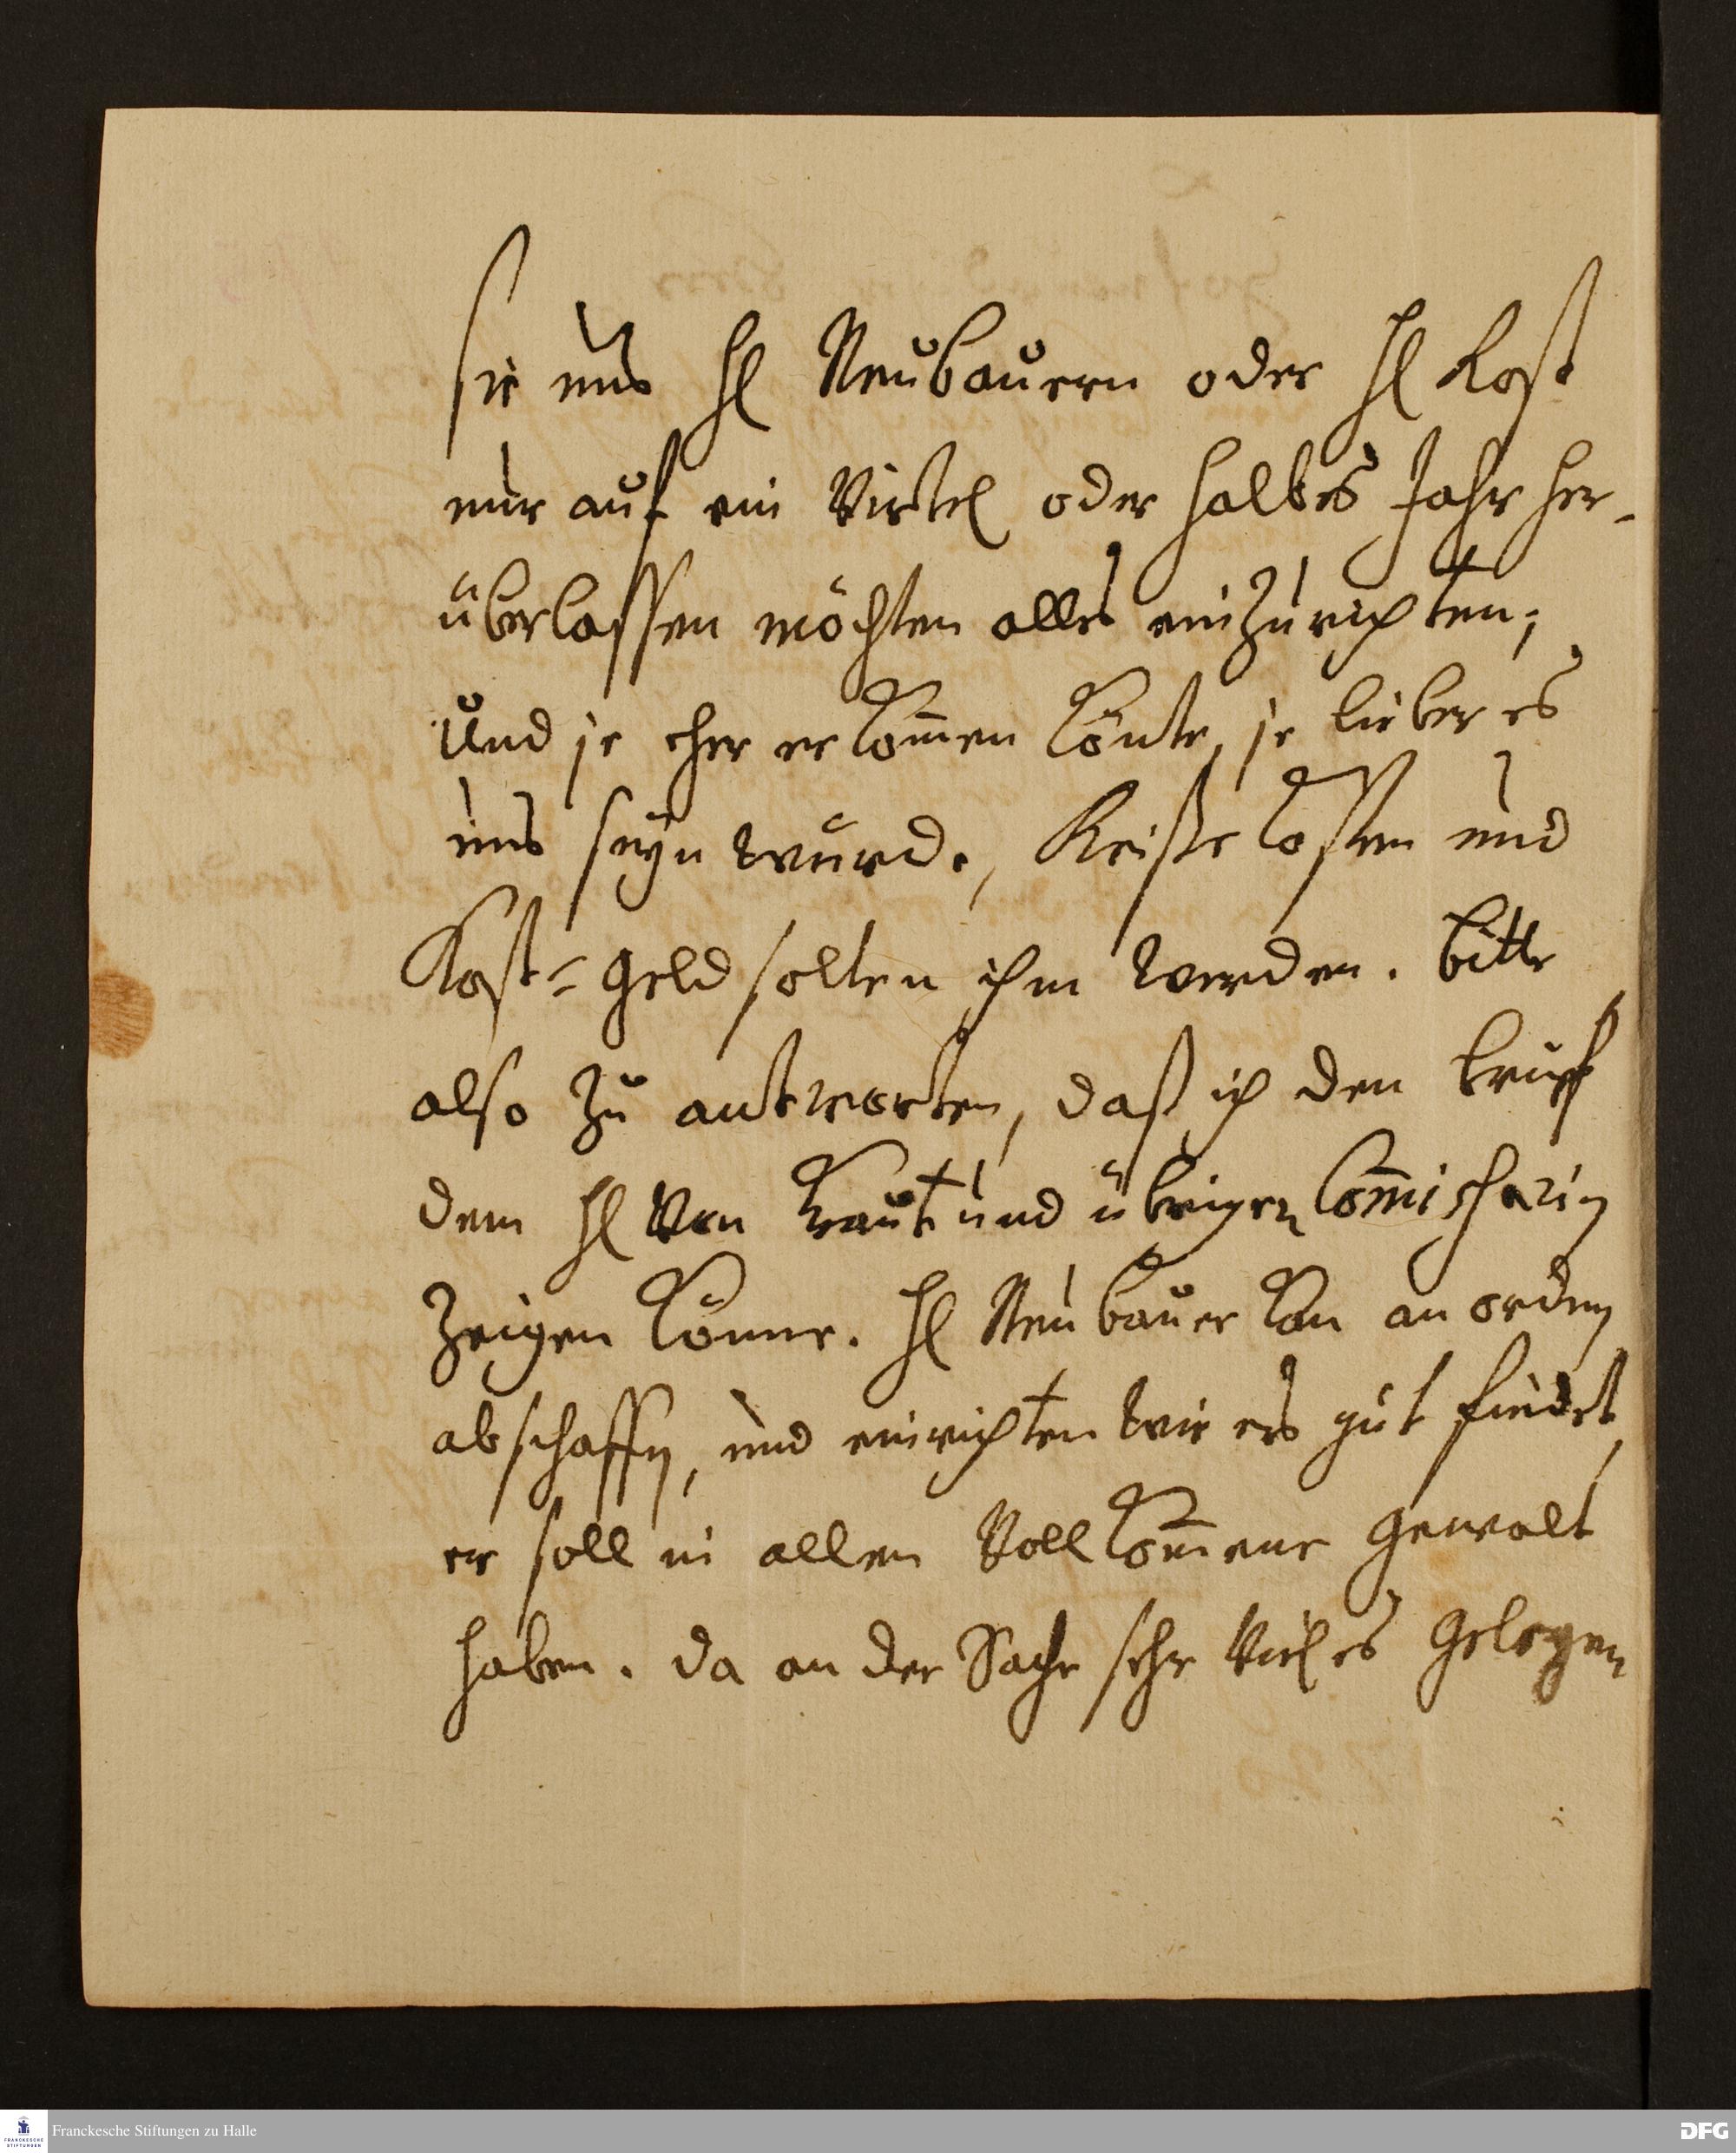 sie uns H. Neubauern oder H. Rost
nur auf ein Virtel oder halbes Jahr her-
über lassen möchten alles einzurichten;
Und je eher er kom̄en könte, je lieber es
uns seyn würde, Reise kosten und
Kost-geld solten ihm werden. bitte
also zu antworten, daß ich den brieff
dem H. Von Kraut und übrigen Com̄issarien
zeigen könne. H. Neubauer kan an ordnen
abschaffen, und einrichten wie ers gut findet,
er soll in allen Vollkom̄ene gewalt
haben. da an der Sache sehr Vieles gelegen
Franckesche Stiftungen zu Halle
FRANCKESCHE
STIFTUNGEN
DFG